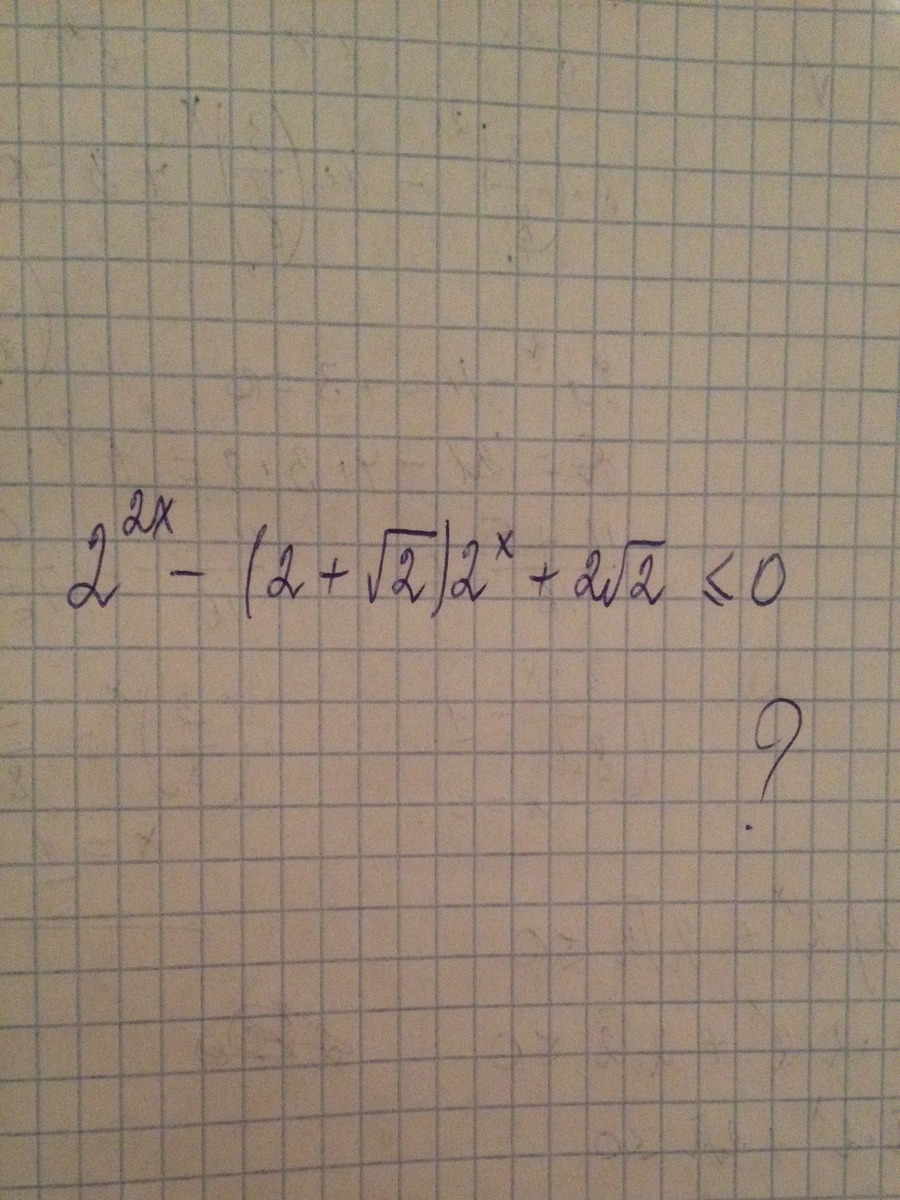 2^{2x} - (2 + √2)2^x + 2√2 ⩽ 0
?